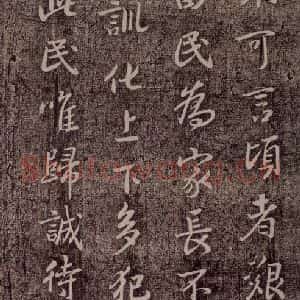 可言頃者艱
民為家長不
訓化上下多犯
此民唯歸誠待